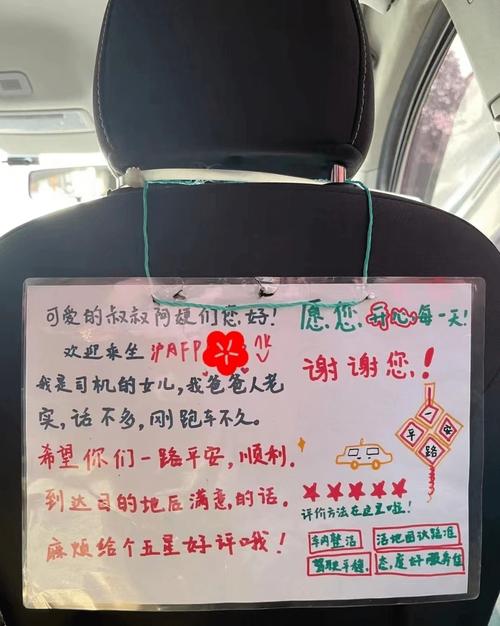 可爱的叔叔阿姨们您好!
欢迎来坐沪AFP
我是司机的女儿,我爸爸人老
实,话不多,刚跑车不久。
希望你们一路平安,顺利。
到达目的地后满意,的话。
麻烦给个五星好评哦!
愿您,开心每一天!
谢谢您,!
一
平 安
路
评价方法在这里啦!
车内整洁
活地图认路准
驾驶平稳
态度好服务佳